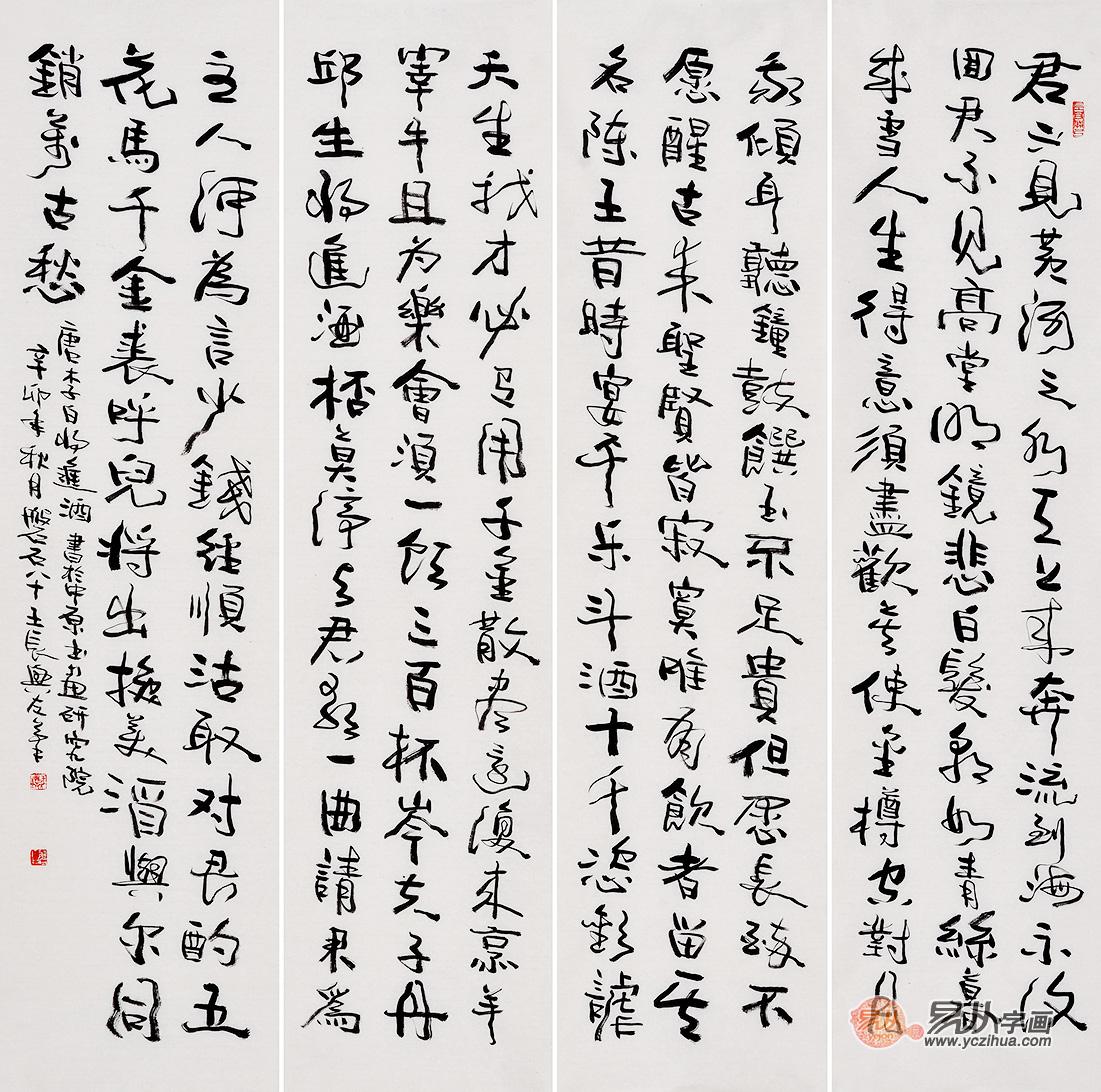 君不見黄河之水天上来奔流到海不復
回君不見高堂明鏡悲白髮朝如青絲暮
成雪人生得意須盡歡莫使金樽空對月
我傾耳聽鐘鼓饌玉不足貴但愿長醉不
愿醒古来聖賢皆寂寞唯有飲者留其
名陈王昔時宴平乐斗酒十千恣歡謔
天生我才必有用千金散尽還復来烹羊
宰牛且为樂會須一飲三百杯岑夫子丹
邱生將進酒杯莫停与君歌一曲請君爲
主人何為言少錢經順沽取对君酌五
花馬千金裘呼兒将出換美酒與尔同
銷萬古愁
唐李白將進酒書於中原书画研究院
辛卯年秋月磐石八十王長興左筆
易从字画
www.yczihua.com